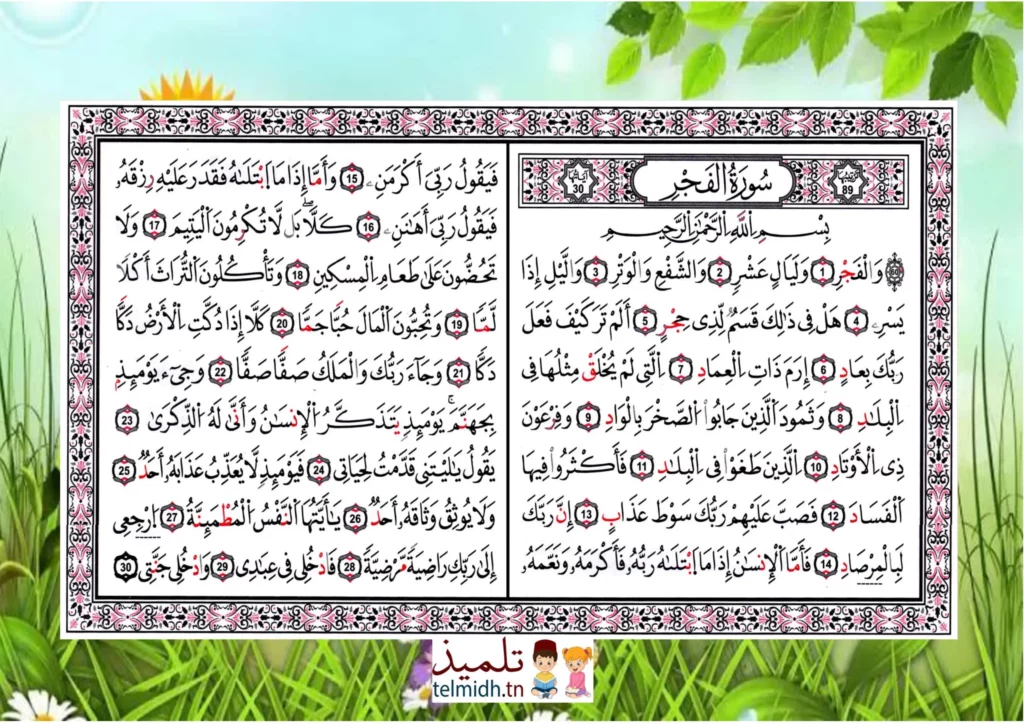 ترتيبها 89
سُورَةُ الْفَجْرِ
آياتها 30
بِسْمِ اِللَّهِ اِلرَّحْمَٰنِ اِلرَّحِيمِ
وَالْفَجْرِ 1 وَلَيَالٍ عَشْرٍ 2 وَالشَّفْعِ وَالْوَتْرِ 3 وَالَّيْلِ إِذَا
يَسْرِۦ 4 هَلْ فِى ذَٰلِكَ قَسَمٌ لِّذِى حِجْرٍ 5 أَلَمْ تَرَ كَيْفَ فَعَلَ
رَبُّكَ بِعَادٍ 6 إِرَمَ ذَاتِ اِلْعِمَادِ 7 اِلَّتِى لَمْ يُخْلَقْ مِثْلُهَا فِى
اِلْبِلَٰدِ 8 وَثَمُودَ اَلَّذِينَ جَابُواْ اُلصَّخْرَ بِالْوَادِ 9 وَفِرْعَوْنَ
ذِى اِلْأَوْتَادِ 10 اِلَّذِينَ طَغَوْاْ فِى اِلْبِلَٰدِ 11 فَأَكْثَرُواْ فِيهَا
اَلْفَسَادَ 12 فَصَبَّ عَلَيْهِمْ رَبُّكَ سَوْطَ عَذَابٍ 13 إِنَّ رَبَّكَ
لَبِالْمِرْصَادِ 14 فَأَمَّا اَلْإِنسَٰنُ إِذَا مَا اَبْتَلَىٰهُ رَبُّهُۥ فَأَكْرَمَهُۥ وَنَعَّمَهُۥ
فَيَقُولُ رَبِّىَ أَكْرَمَنِۦ 15 وَأَمَّا إِذَا مَا اَبْتَلَىٰهُ فَقَدَرَ عَلَيْهِ رِزْقَهُۥ
فَيَقُولُ رَبِّىَ أَهَٰنَنِۦ 16 كَلَّا بَل لَّا تُكْرِمُونَ اَلْيَتِيمَ 17 وَلَا
تَحُضُّونَ عَلَىٰ طَعَامِ اِلْمِسْكِينِ 18 وَتَأْكُلُونَ اَلتُّرَاثَ أَكْلًا
لَّمًّا 19 وَتُحِبُّونَ اَلْمَالَ حُبًّا جَمًّا 20 كَلَّا إِذَا دُكَّتِ اِلْأَرْضُ دَكًّا
دَكًّا 21 وَجَآءَ رَبُّكَ وَالْمَلَكُ صَفًّا صَفًّا 22 وَجِىٓءَ يَوْمَئِذٍ
بِجَهَنَّمَ يَوْمَئِذٍ يَتَذَكَّرُ اُلْإِنسَٰنُ وَأَنَّىٰ لَهُ اُلذِّكْرَىٰ 23
يَقُولُ يَٰلَيْتَنِى قَدَّمْتُ لِحَيَاتِى 24 فَيَوْمَئِذٍ لَّا يُعَذِّبُ عَذَابَهُۥ أَحَدٌ 25
وَلَا يُوثِقُ وَثَاقَهُۥ أَحَدٌ 26 يَٰأَيَّتُهَا اَلنَّفْسُ اُلْمُطْمَئِنَّةُ 27 اُرْجِعِى
إِلَىٰ رَبِّكِ رَاضِيَةً مَّرْضِيَّةً 28 فَادْخُلِى فِى عِبَٰدِى 29 وَادْخُلِى جَنَّتِى 30
تلميذ
telmidh.tn